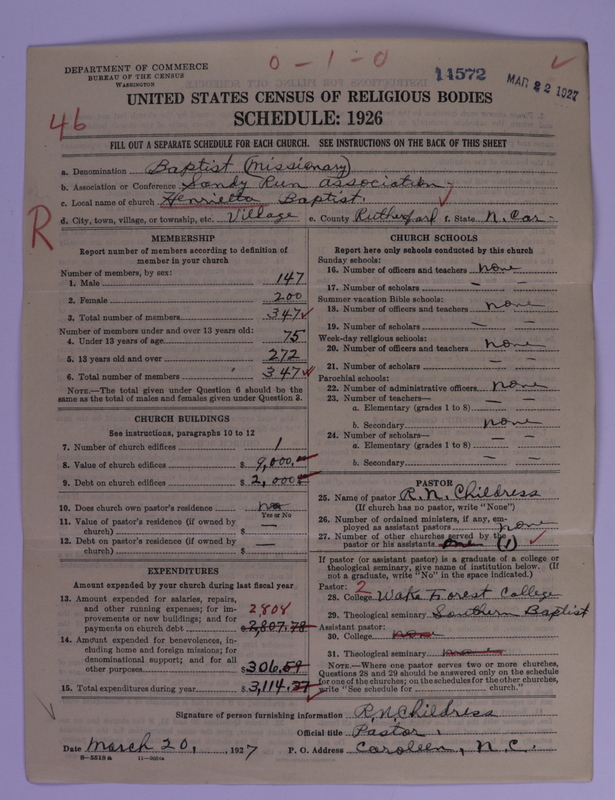 0 - 1 - 0
DEPARTMENT OF COMMERCE
BUREAU OF THE CENSUS
WASHINGTON
14572
MAR 22 1927
UNITED STATES CENSUS OF RELIGIOUS BODIES
SCHEDULE: 1926
46
FILL OUT A SEPARATE SCHEDULE FOR EACH CHURCH. SEE INSTRUCTIONS ON THE BACK OF THIS SHEET
a. Denomination Baptist (Missionary)
b. Association or Conference Sandy Run association
c. Local name of church Henrietta Baptist.
d. City, town, village, or township, etc. Village e. County Rutherford f. State N. Car-
R
MEMBERSHIP
Report number of members according to definition of
member in your church
Number of members, by sex:
1. Male 147
2. Female 200
3. Total number of members 347
Number of members under and over 13 years old:
4. Under 13 years of age 75
5. 13 years old and over 272
6. Total number of members 347
NOTE.—The total given under Question 6 should be the
same as the total of males and females given under Question 3.
CHURCH BUILDINGS
See instructions, paragraphs 10 to 12
7. Number of church edifices 1
8. Value of church edifices $ 9,000.
9. Debt on church edifices $ 2,000
10. Does church own pastor's residence no
Yes or No
11. Value of pastor's residence (if owned by
church) $ —
12. Debt on pastor's residence (if owned by
church) $ —
EXPENDITURES
Amount expended by your church during last fiscal year
13. Amount expended for salaries, repairs,
and other running expenses; for im-
provements or new buildings; and for
payments on church debt $ 2,807.78
2,808
14. Amount expended for benevolences, in-
cluding home and foreign missions; for
denominational support; and for all
other purposes 306.59
15. Total expenditures during year $3,114.37
CHURCH SCHOOLS
Report here only schools conducted by this church
Sunday schools:
16. Number of officers and teachers none
17. Number of scholars — —
Summer vacation Bible schools:
18. Number of officers and teachers none
19. Number of scholars — —
Week-day religious schools:
20. Number of officers and teachers none
21. Number of scholars — —
Parochial schools:
22. Number of administrative officers none
23. Number of teachers—
a. Elementary (grades 1 to 8) — —
b. Secondary none
24. Number of scholars—
a. Elementary (grades 1 to 8) — —
b. Secondary — —
PASTOR
25. Name of pastor R. N. Childress
(If church has no pastor, write "None")
26. Number of ordained ministers, if any, em-
ployed as assistant pastors none
27. Number of other churches served by the
pastor or his assistants one (1)
If pastor (or assistant pastor) is a graduate of a college or
theological seminary, give name of institution below. (If
not a graduate, write "No" in the space indicated.)
Pastor: 2
28. College Wake Forest College
29. Theological seminary Southern Baptist
Assistant pastor:
30. College none
31. Theological seminary none
NOTE.—Where one pastor serves two or more churches,
Questions 28 and 29 should be answered only on the schedule
for one of the churches; on the schedules for the other churches,
write "See schedule for church."
Signature of person furnishing information R. N. Childress
Official title Pastor.
Date March 20, 1927 P. O. Address Caroleen, N.C.